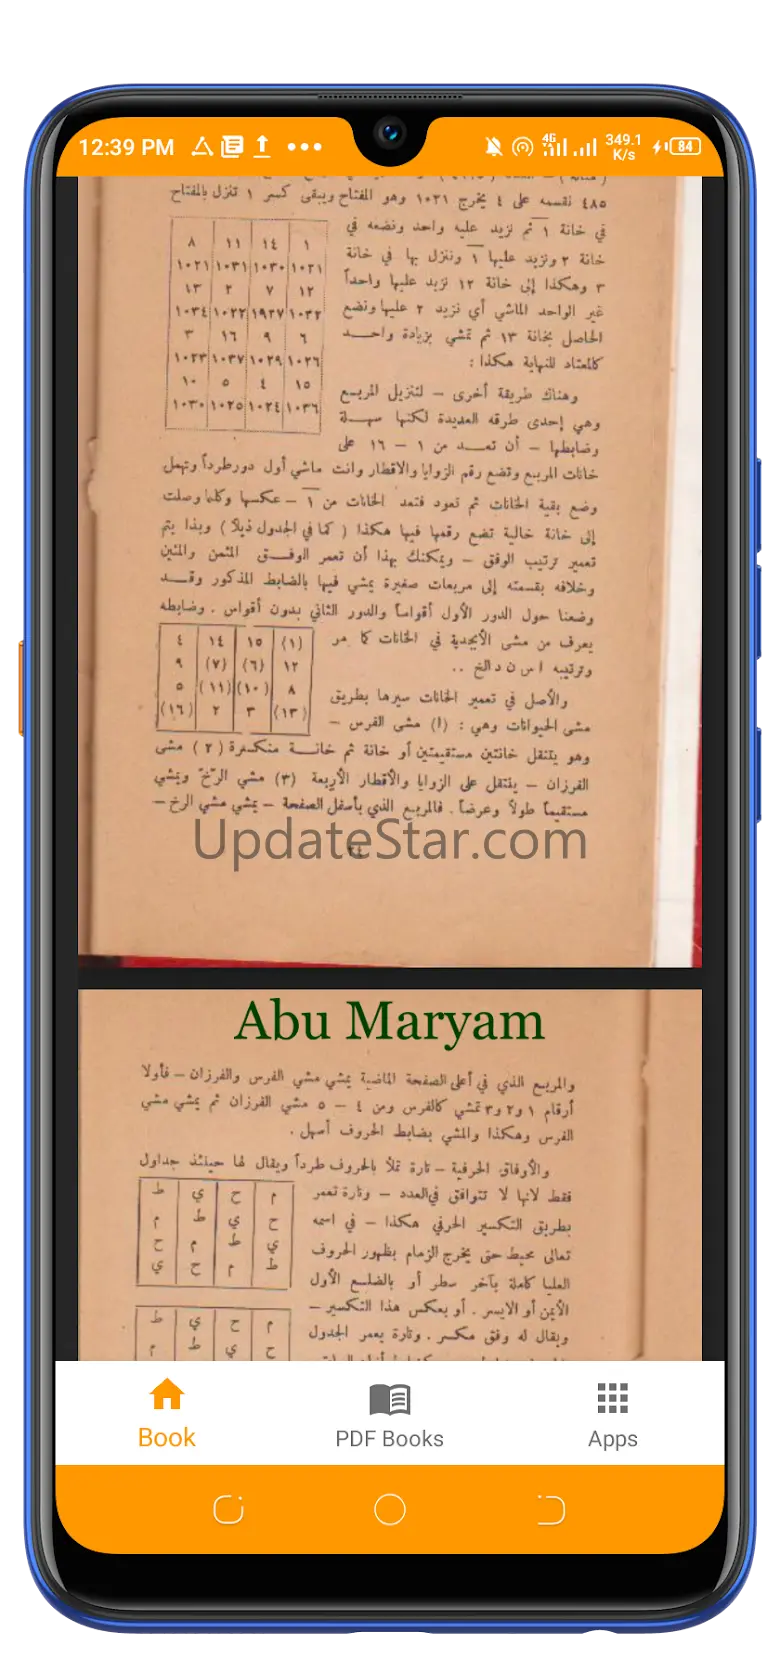 12:39 PM
4G
349.1
K/s
84
٤٨٥ نقسمه على ٤ يخرج ١٠٢١ وهو المفتاح ويبقى كسر ١ تنزل بالمفتاح
في خانة ١ ثم نزيد عليه واحد ونضعه في
خانة ٢ ونزيد عليها ١ وننزل بها في خانة
٣ وهكذا إلى خانة ١٢ نزيد عليها واحداً
غير الواحد الماشي أي نزيد ٢ عليها ونضع
الحاصل بخانة ١٣ ثم تمشي بزيادة واحد
كالمعتاد للنهاية هكذا :
٨ ١١ ١٤ ١
١٠٢١ ١٠٣١ ١٠٣٠ ١٠٢١
١٣ ٢ ٧ ١٢
١٠٣٤ ١٠٢٢ ١٩٢٧ ١٠٣٢
٣ ١٦ ٩ ٦
١٠٢٣ ١٠٣٧ ١٠٢٩ ١٠٢٦
١٠ ٥ ٤ ١٥
١٠٣٠ ١٠٢٥ ١٠٢٤ ١٠٣٦
وهناك طريقة أخرى – لتنزيل المربع
وهي إحدى طرقه العديدة لكنها سهلة
وضابطها – أن تعد من ١ – ١٦ على
خانات المربع وتضع رقم الزوايا والاقطار وانت ماشي أول دور طرداً وتهمل
وضع بقية الخانات ثم تعود فتعد الخانات من ١ – عكسها وكلما وصلت
إلى خانة خالية تضع رقمها فيها هكذا ( كما في الجدول ذيلاً ) وبذا يتم
تعمير ترتيب الوفق – ويمكنك بهذا أن تعمر الوفق المثمن والمئين
وخلافه بقسمته إلى مربعات صغيرة يمشي فيها بالضابط المذكور وقد
وضعنا حول الدور الأول أقواساً والدور الثاني بدون أقواس . وضابطه
يعرف من مشى الأبجدية في الخانات كما مر
وترتيبه ا س ن د الخ ..
٤ ١٤ ١٥ (١)
٩ (٧) (٦) ١٢
٥ (١١) (١٠) ٨
(١٦) ٢ ٣ (١٣)
والأصل في تعمير الخانات سيرها بطريق
مشى الحيوانات وهي : (١) مشى الفرس –
وهو يتنقل خانتين مستقيمتين أو خانة ثم خانة منكسرة (٢) مشى
الفرزان – يتنقل على الزوايا والأقطار الأربعة (٣) مشي الرّخّ ويمشي
مستقيماً طولاً وعرضاً . فالمربع الذي بأسفل الصفحة – يمشي مشي الرخ –
UpdateStar.com
Abu Maryam
والمربع الذي في أعلى الصفحة الماضية يمشي مشي الفرس والفرزان – فأولا
أرقام ١ و٢ و٣ تمشي كالفرس ومن ٤ – ٥ مشي الفرزان ثم يمشي مشي
الفرس وهكذا والمشي بضابط الحروف أسهل .
والأوفاق الحرفية – تارة تملأ بالحروف طرداً ويقال لها حينئذ جداول
فقط لانها لا تتوافق في العدد – وتارة تعمر
بطريق التكسير الحرفي هكذا – في اسمه
تعالى محيط حتى يخرج الزمام بظهور الحروف
العليا كاملة بآخر سطر أو بالضلع الأول
الأيمن أو الايسر . أو بعكس هذا التكسير –
ويقال له وفق مكسر . وتارة يعمر الجدول
ط ي ح م
م ط ي ح
ح م ط ي
ي ح م ط
ط ي ح م
م ط ي ح
Book
PDF Books
Apps